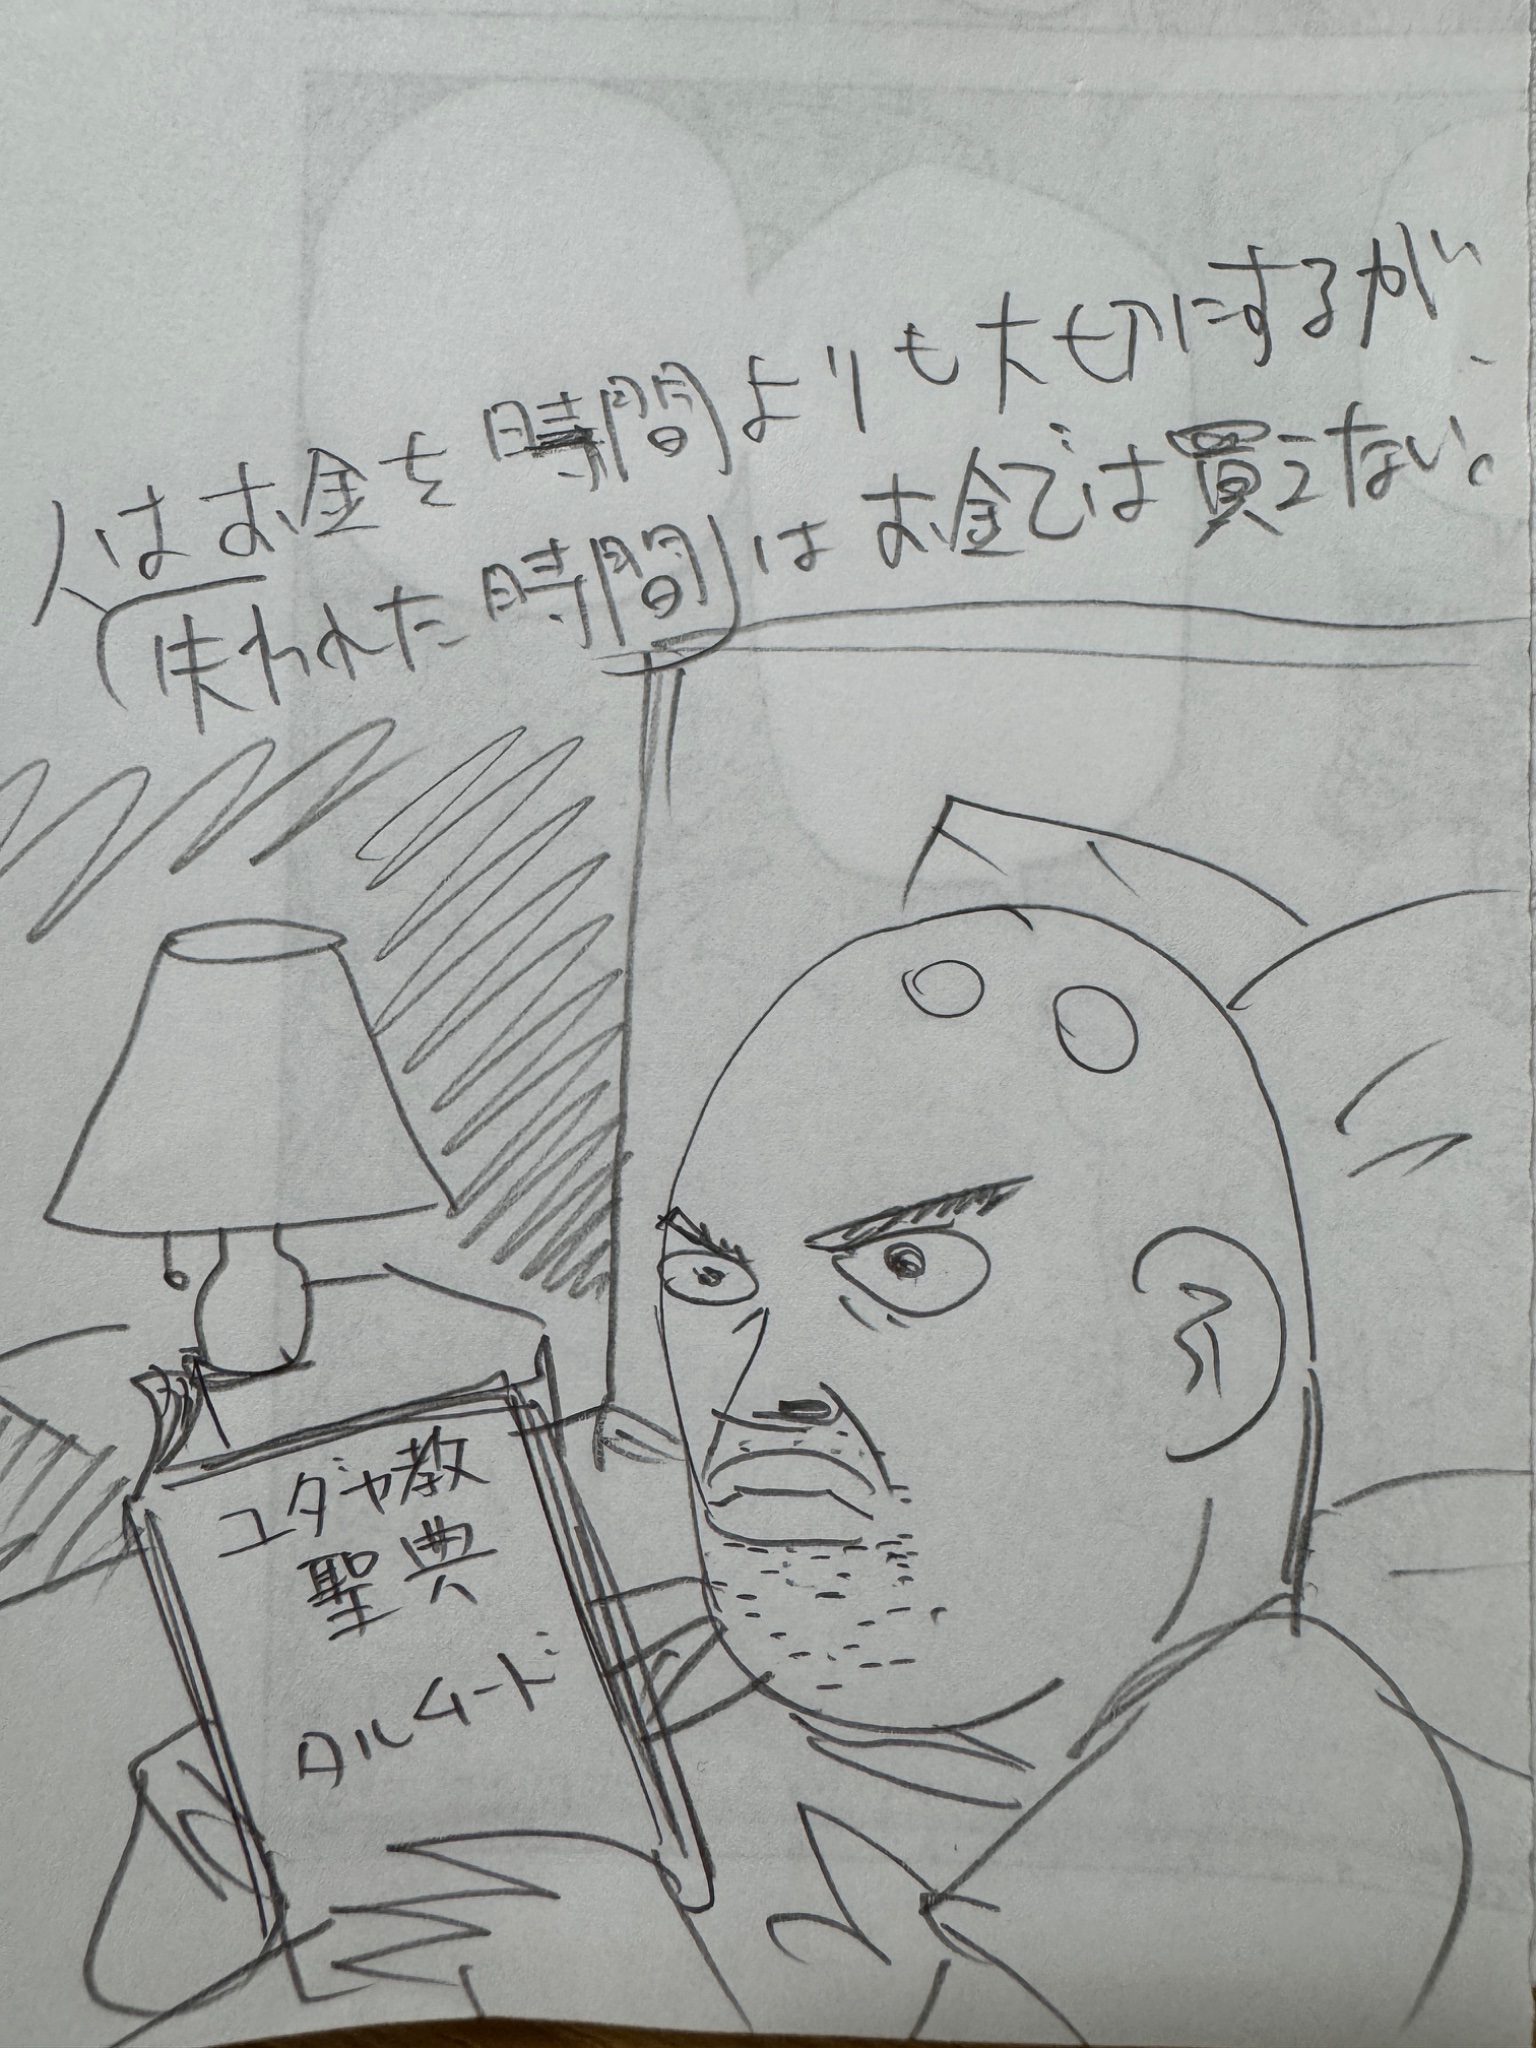 人はお金を時間よりも大切にするが、
失われた時間はお金では買えない。
ユダヤ教
聖典
タルムード